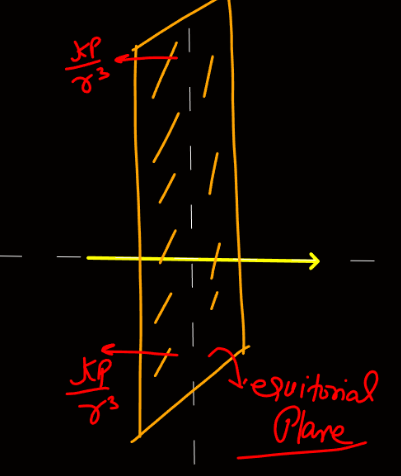 KP
r³
KP
r³
equitorial
Plane